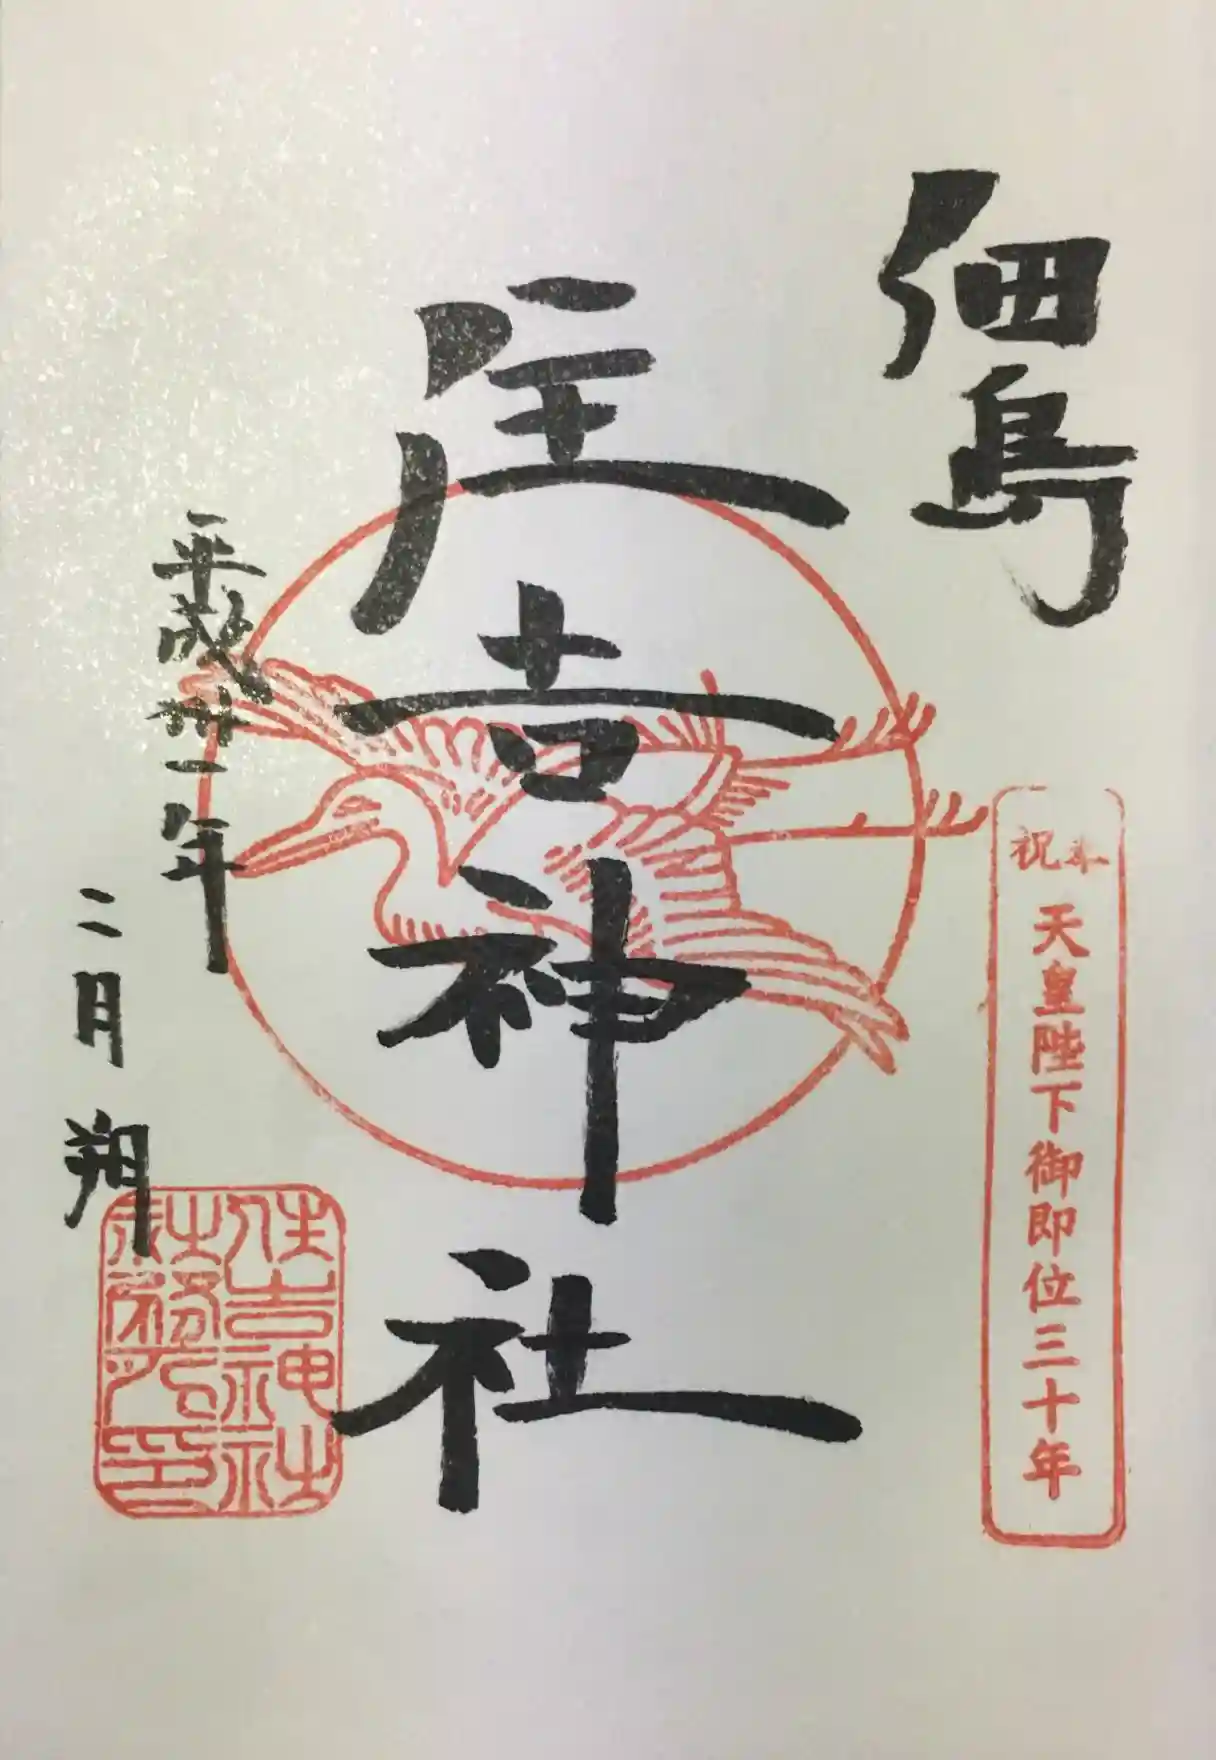 佃島
奉祝
天皇陛下御即位三十年
住吉神社
平成卅一年
二月朔
住吉神社
社務所印